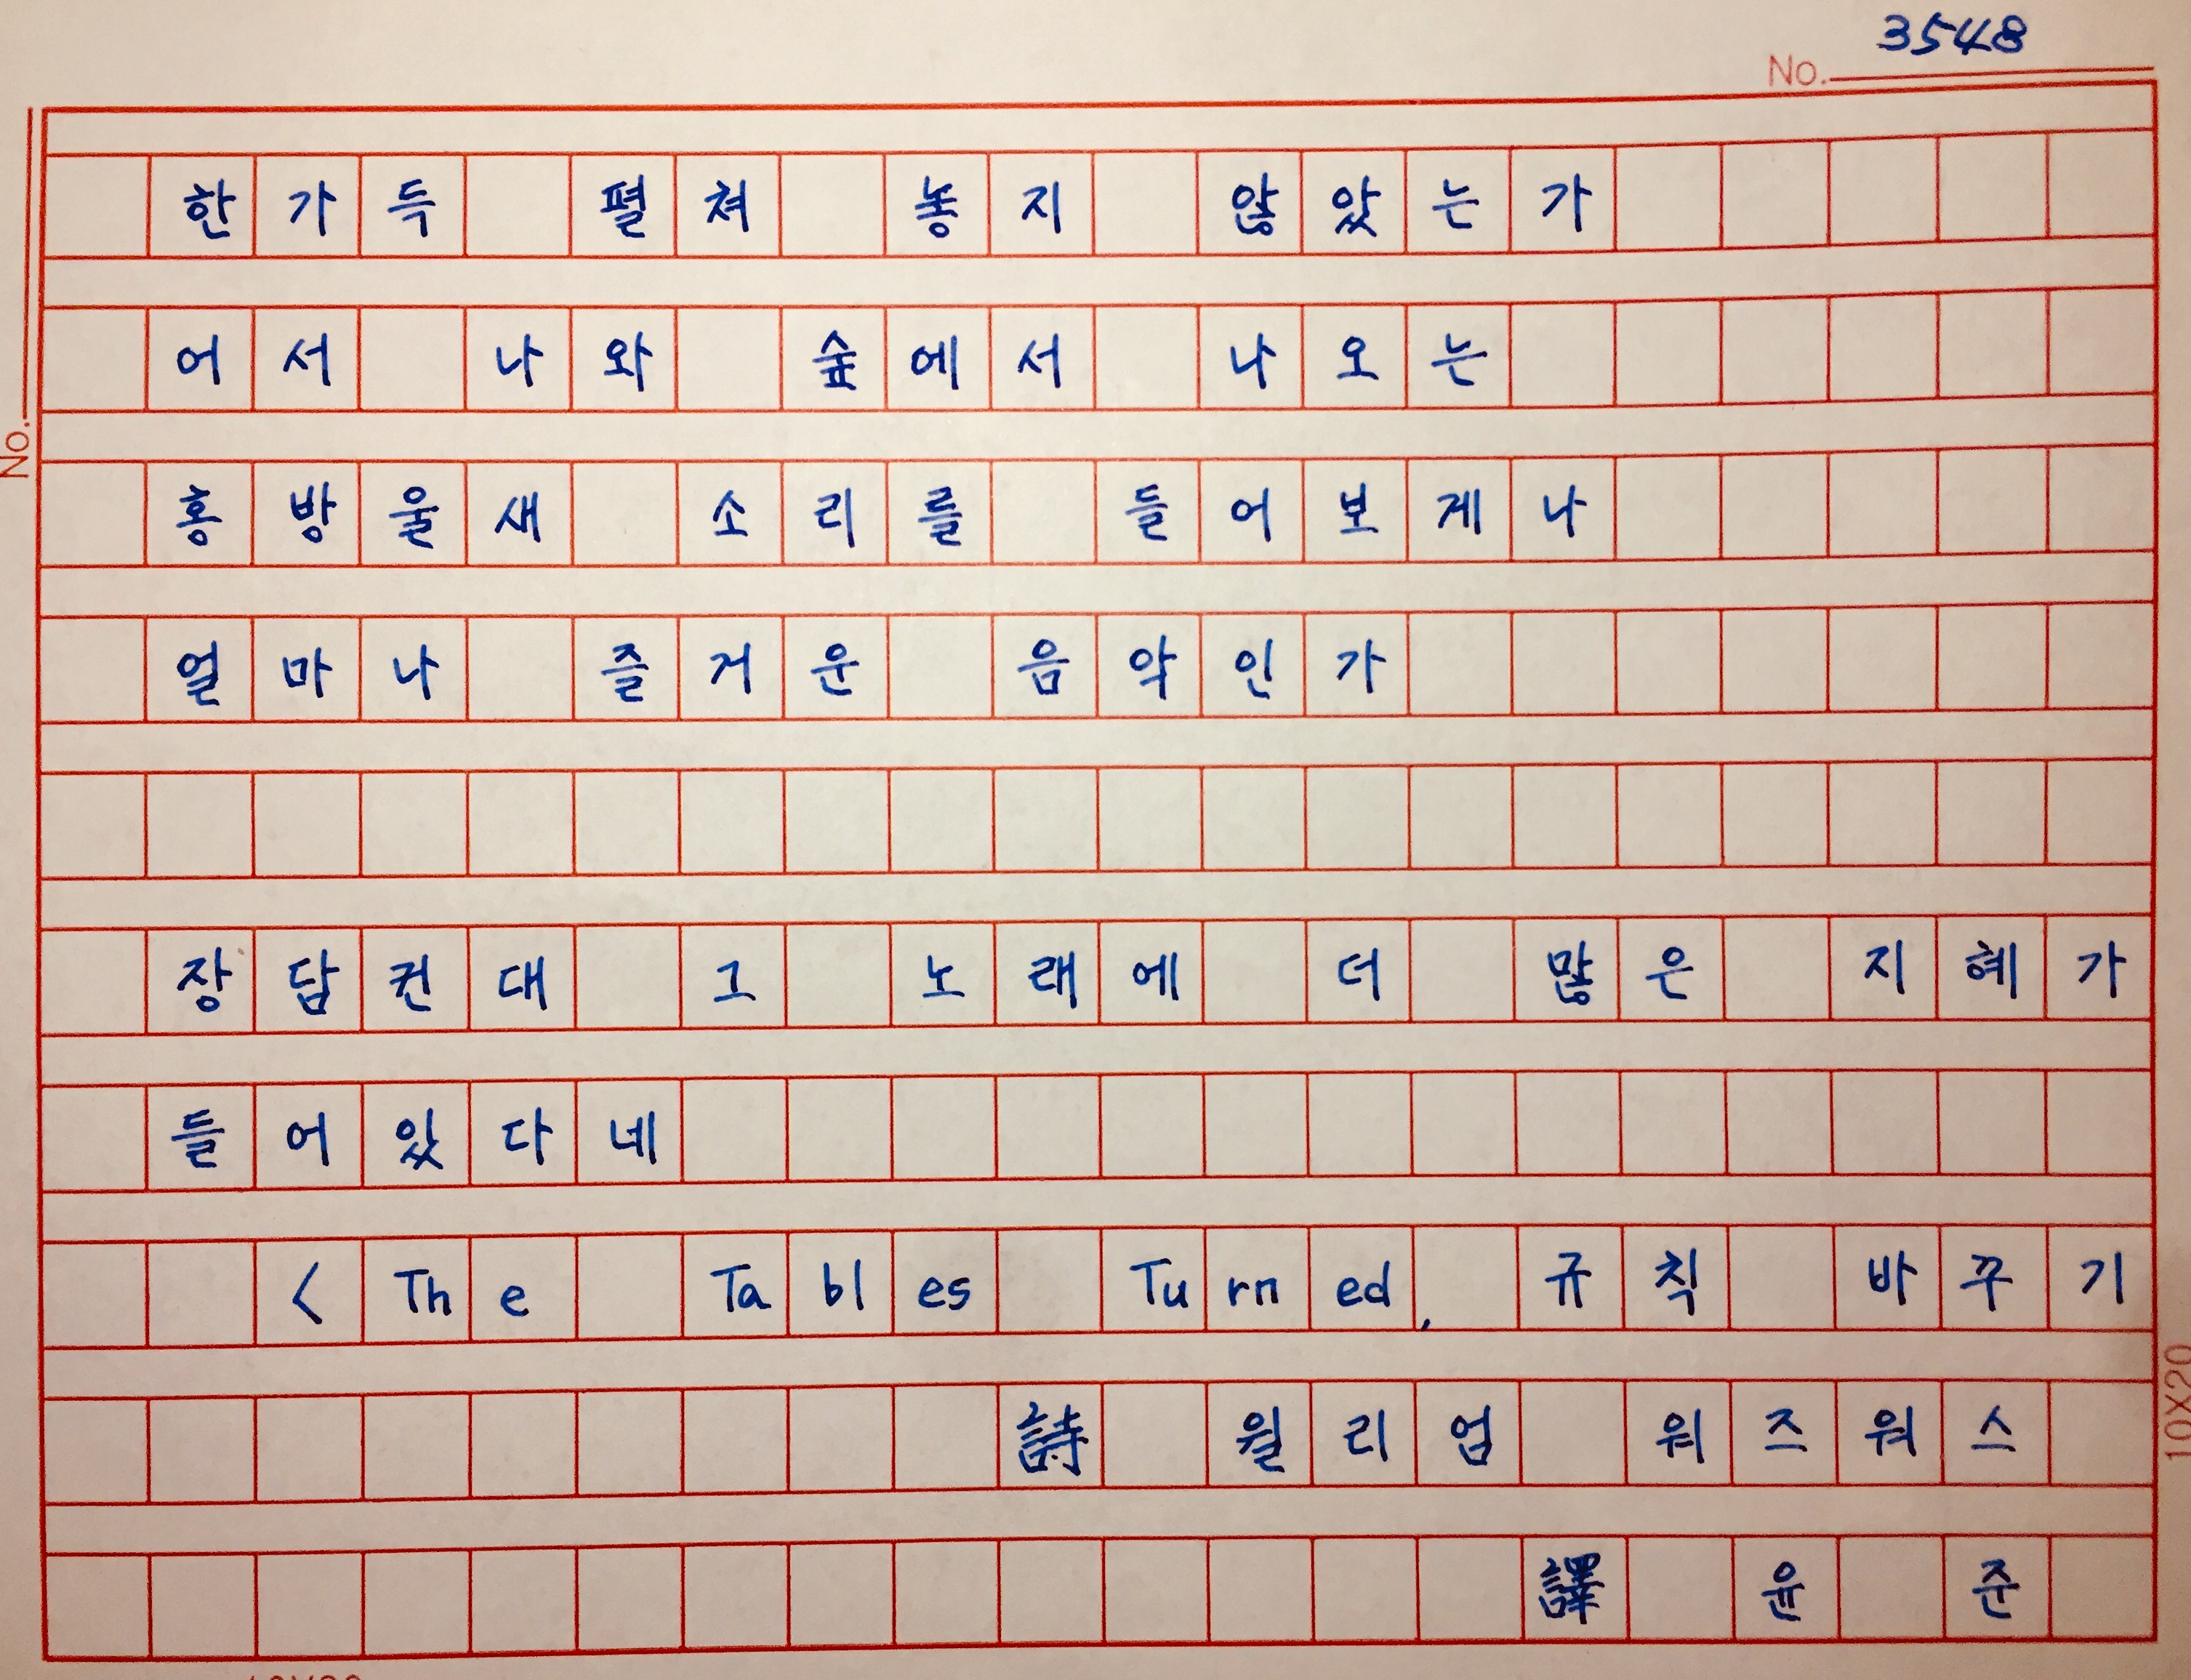 3548
No.
한가득 펼쳐 놓지 않았는가
어서 나와 숲에서 나오는
홍방울새 소리를 들어보게나
No.
얼마나 즐거운 음악인가
장담컨대 그 노래에 더 많은 지혜가
들어있다네
< The Tables Turned, 규칙 바꾸기
詩 윌리엄 워즈워스
10X20
譯 윤 준